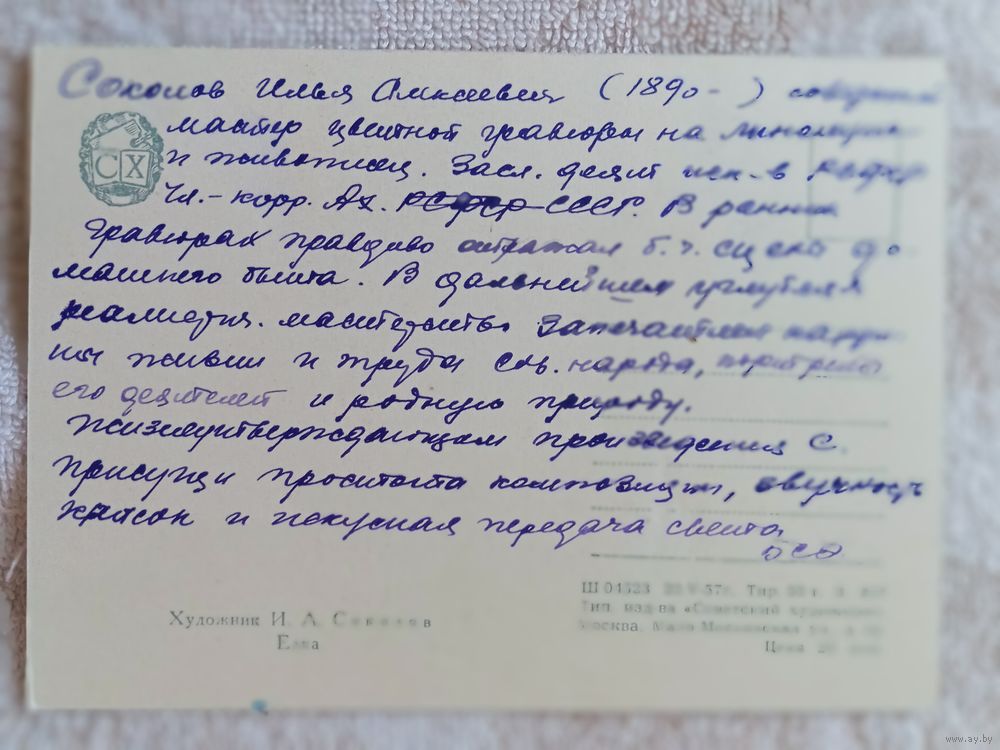 Соколов Илья Алексеевич (1890 - ) советский
мастер цветной гравюры на линолеуме
СХ
и живописец. Засл. деят иск-в РСФСР
Чл.-корр. Ах. РСФСР СССР. В ранних
гравюрах правдиво отражал б.ч. сцены до
машнего быта. В дальнейшем углубляя
реалистич. мастерство запечатлел карти
ны жизни и труда сов. народа, портреты
его деятелей и родную природу.
Жизнеутверждающим произведениям С.
присущи простота композиции, звучность
красок и искусная передача света
БСЭ
Ш 04323 57г. Тир.
Тип. изд-ва «Советский художник»
Москва,
Цена
Художник И. А. Соколов
Елка
www.ay.by